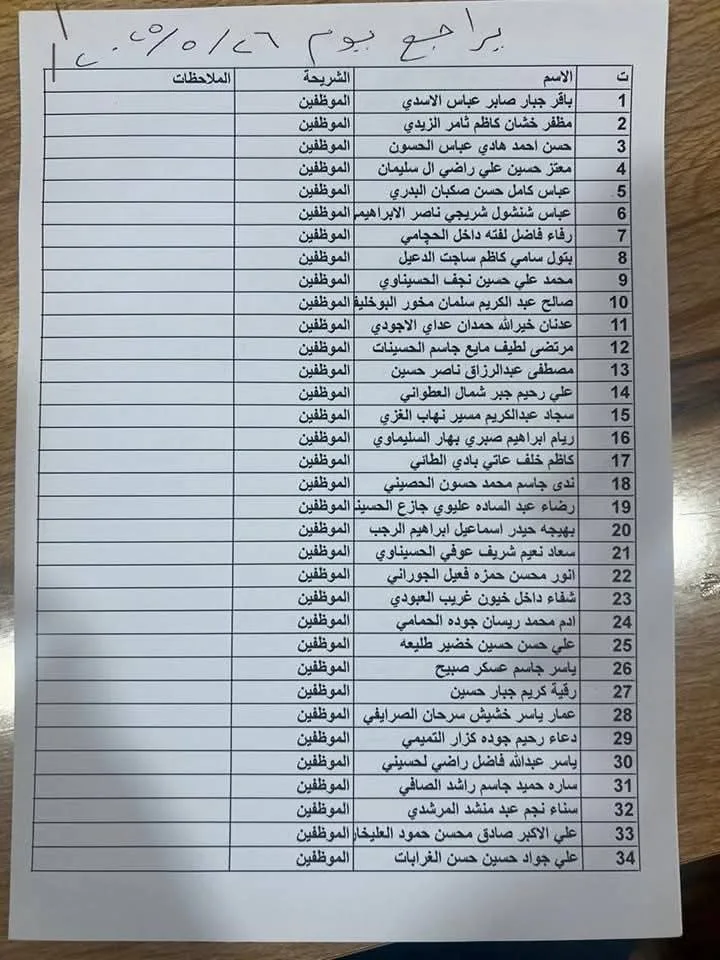 يراجع يوم ٢٠٢٥/٥/٢٦
ت الاسم الشريحة الملاحظات
1 باقر جبار صابر عباس الاسدي الموظفين
2 مظفر خشان كاظم ثامر الزيدي الموظفين
3 حسن احمد هادي عباس الحسون الموظفين
4 معتز حسين علي راضي ال سليمان الموظفين
5 عباس كامل حسن صكبان البدري الموظفين
6 عباس شنشول شريجي ناصر الابراهيمي الموظفين
7 رفاء فاضل لفته داخل الحچامي الموظفين
8 بتول سامي كاظم ساجت الدعيل الموظفين
9 محمد علي حسين نجف الحسيناوي الموظفين
10 صالح عبد الكريم سلمان مخور البوخليف الموظفين
11 عدنان خيرالله حمدان عداي الاجودي الموظفين
12 مرتضى لطيف مايع جاسم الحسينات الموظفين
13 مصطفى عبدالرزاق ناصر حسين الموظفين
14 علي رحيم جبر شمال العطواني الموظفين
15 سجاد عبدالكريم مسير نهاب الغزي الموظفين
16 ريام ابراهيم صبري بهار السليماوي الموظفين
17 كاظم خلف عاتي بادي الطائي الموظفين
18 ندى جاسم محمد حسون الحصيني الموظفين
19 رضاء عبد الساده عليوي جازع الحسين الموظفين
20 بهيجه حيدر اسماعيل ابراهيم الرجب الموظفين
21 سعاد نعيم شريف عوفي الحسيناوي الموظفين
22 انور محسن حمزه فعيل الجوراني الموظفين
23 شفاء داخل خيون غريب العبودي الموظفين
24 ادم محمد ريسان جوده الحمامي الموظفين
25 علي حسن حسين خضير طليعه الموظفين
26 ياسر جاسم عسكر صبيح الموظفين
27 رقية كريم جبار حسين الموظفين
28 عمار ياسر خشيش سرحان الصرايفي الموظفين
29 دعاء رحيم جوده كزار التميمي الموظفين
30 ياسر عبدالله فاضل راضي لحسيني الموظفين
31 ساره حميد جاسم راشد الصافي الموظفين
32 سناء نجم عبد منشد المرشدي الموظفين
33 علي الاكبر صادق محسن حمود العليخان الموظفين
34 علي جواد حسين حسن الغرابات الموظفين